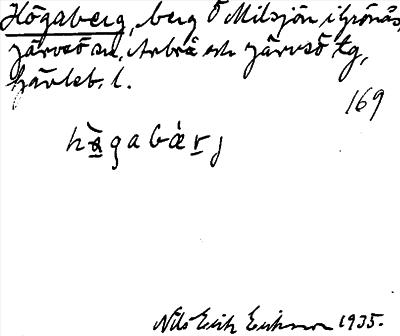 Högaberg, berg Ö Milsjön, i Grönås,
Järvsö sn, Arbrå och Järvsö tg,
Gävleb. l.
169
hågabärj
Nils Erik Eriksson 1935.